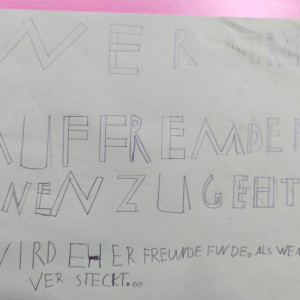 WER
AUF FREMDE
NEN ZUGEHT
WIRD EHER FREUNDE FINDE. ALS WEN
VER STECKT...